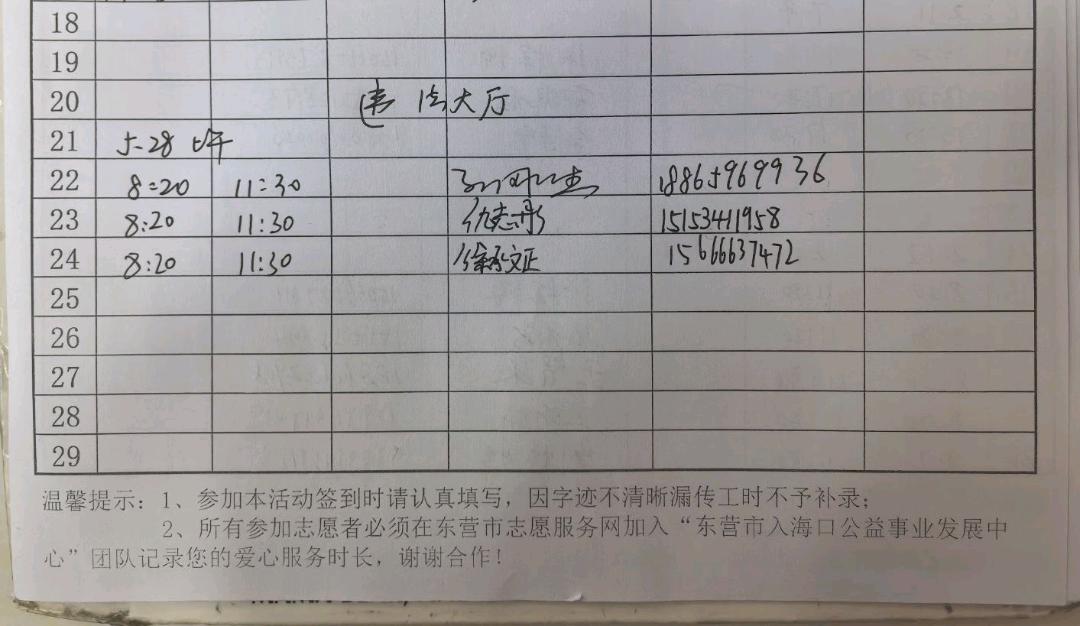 18
19
20 违法大厅
21 5-28 上午
22 8:20 11:30 18865969936
23 8:20 11:30 仇志彤 15153411958
24 8:20 11:30 徐承文正 15666637472
25
26
27
28
29
温馨提示：1、参加本活动签到时请认真填写，因字迹不清晰漏传工时不予补录；
2、所有参加志愿者必须在东营市志愿服务网加入“东营市入海口公益事业发展中
心”团队记录您的爱心服务时长，谢谢合作！